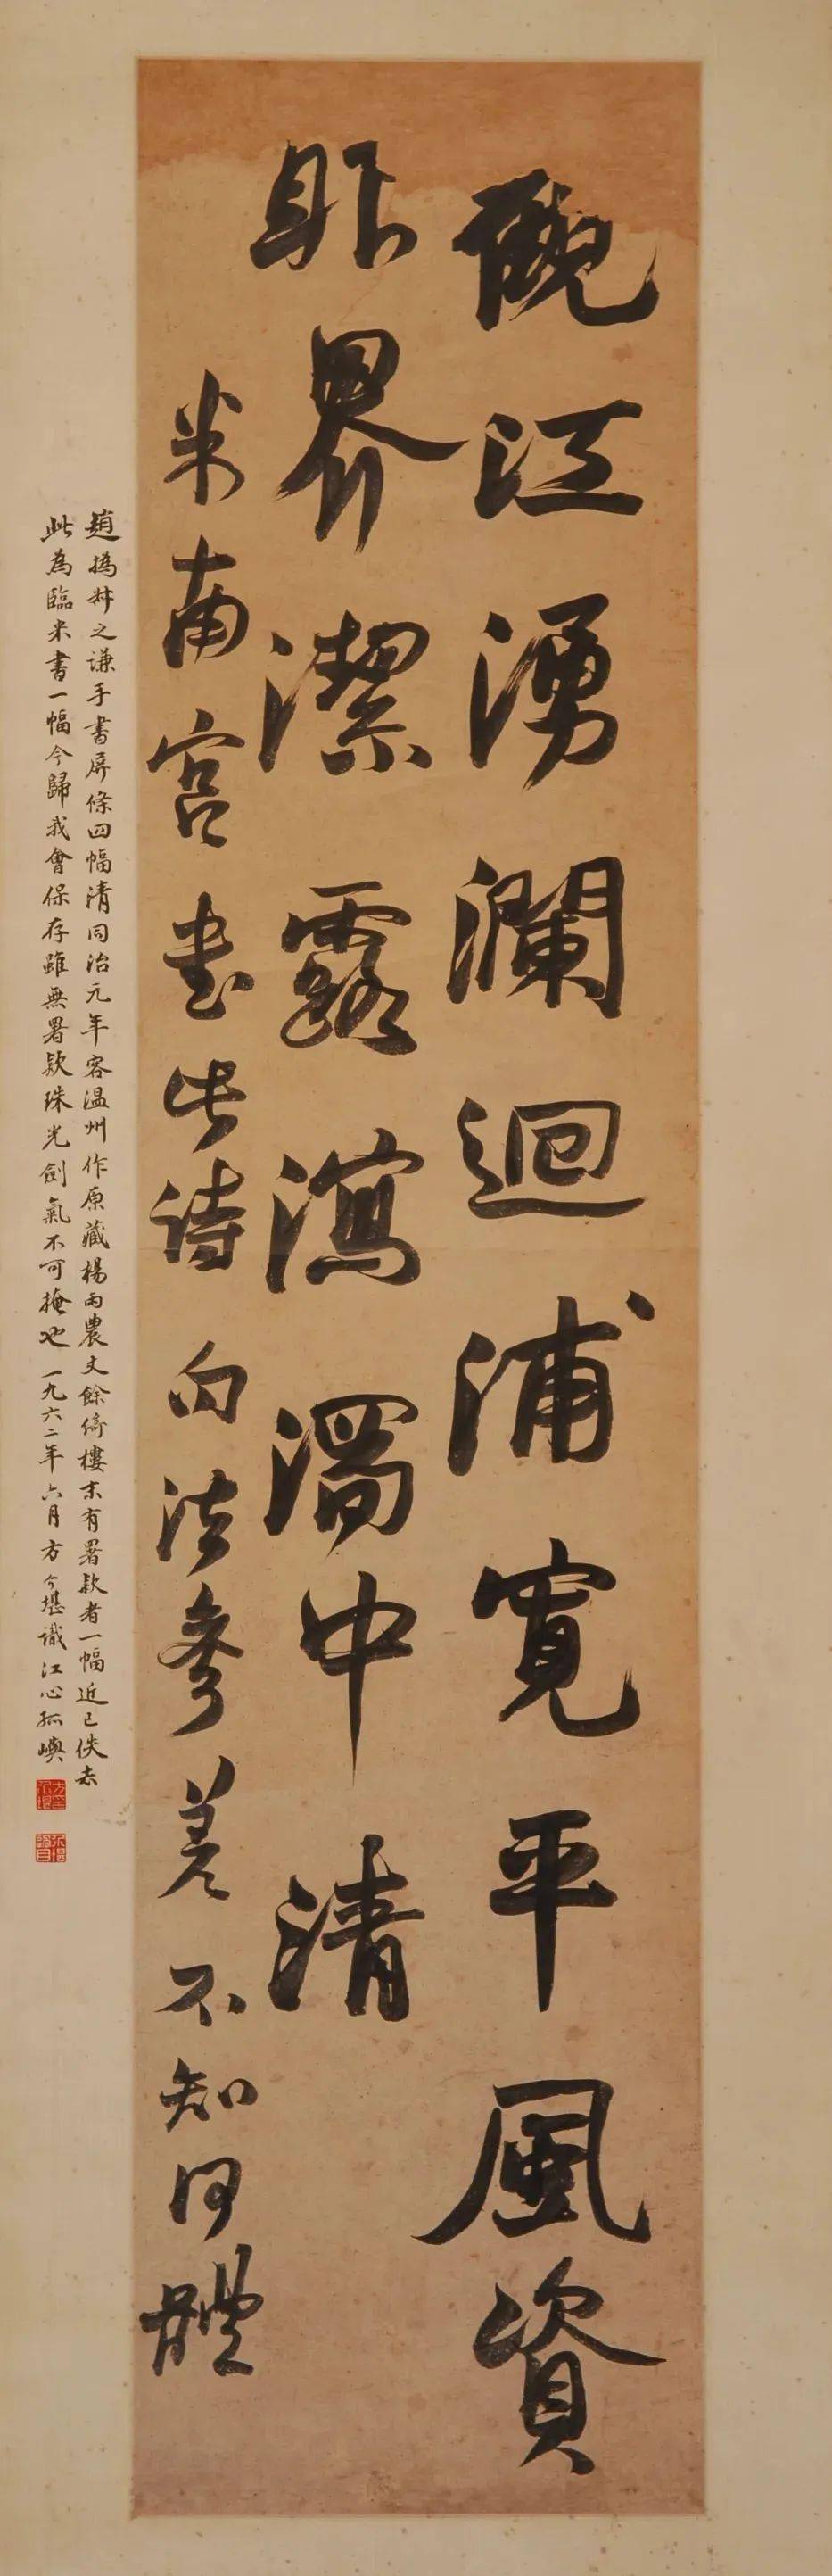 江湧瀾迴浦寬平風資
界潔露瀉濁中清
米南宮書此詩句法參差不知何體
趙撝叔之謙手書屏條四幅清同治元年客温州作原藏楊雨農丈餘倚樓末有署款者一幅近已佚去
此為臨米書一幅今歸我會保存雖無署款珠光劍氣不可掩也一九六二年六月方介堪識江心孤嶼